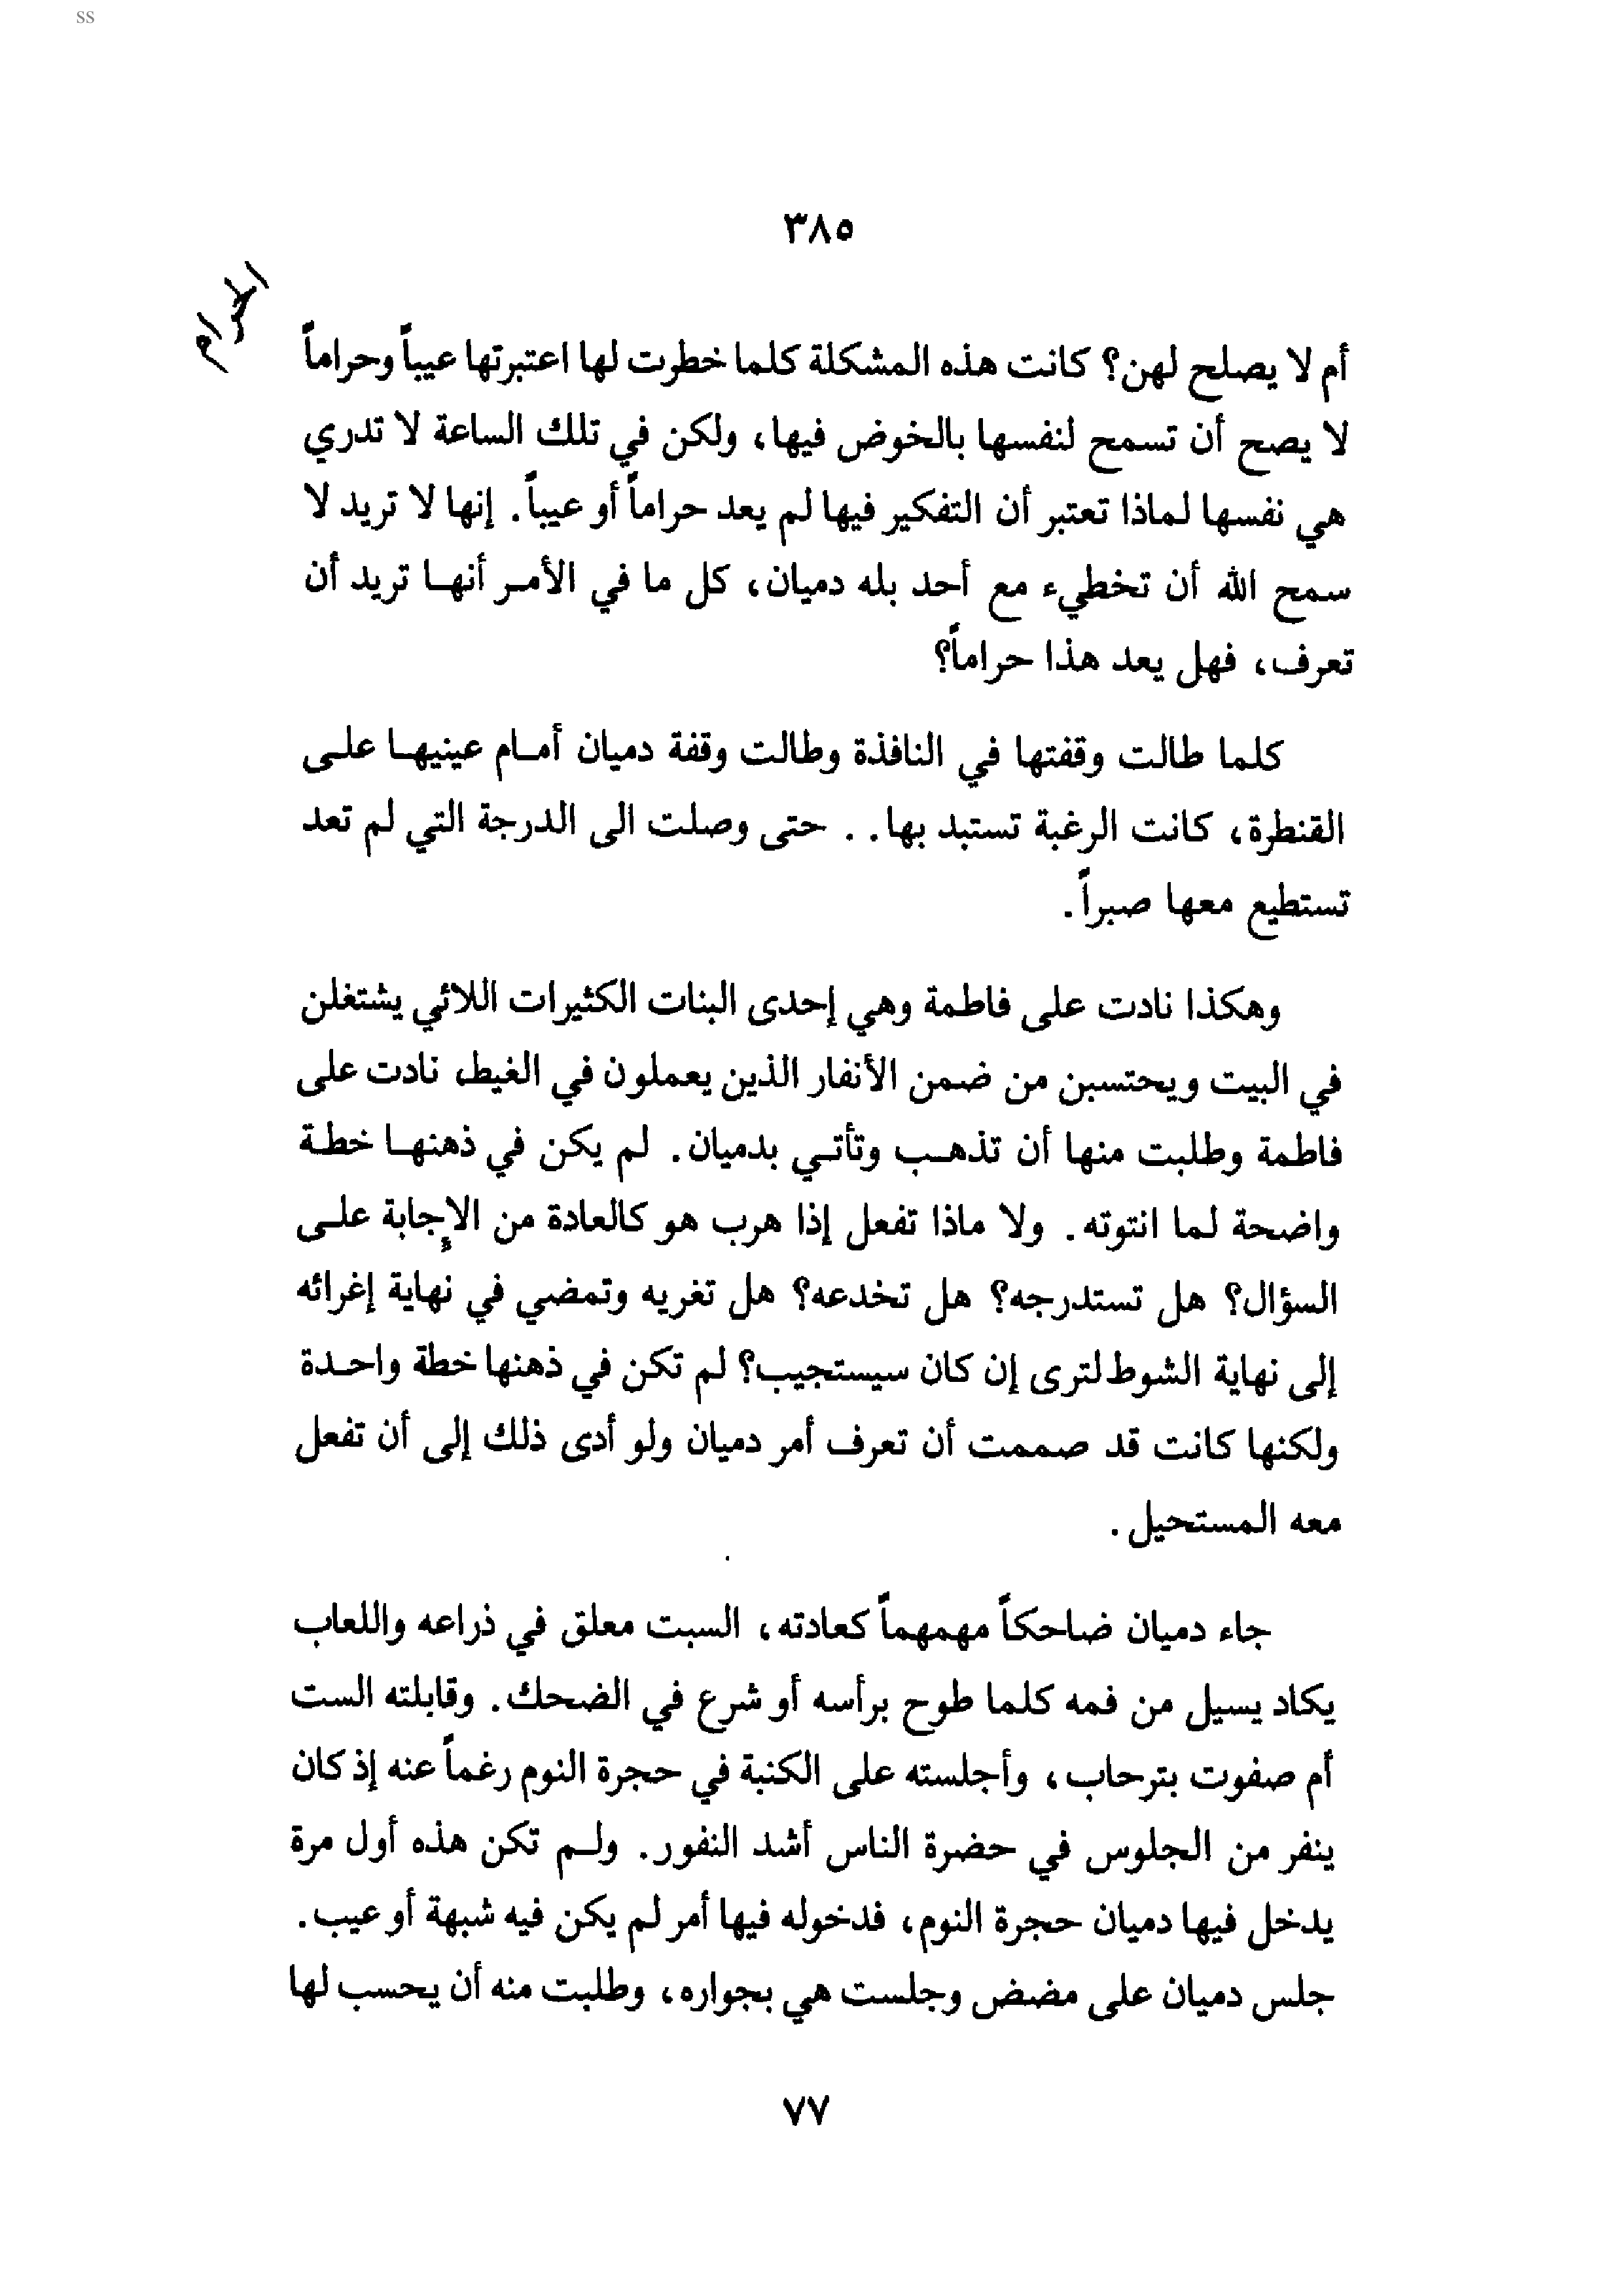 ss
٣٨٥
الحرام
أم لا يصلح لهن؟ كانت هذه المشكلة كلما خطرت لها اعتبرتها عيباً وحراماً
لا يصح أن تسمح لنفسها بالخوض فيها، ولكن في تلك الساعة لا تدري
هي نفسها لماذا تعتبر أن التفكير فيها لم يعد حراماً أو عيباً. إنها لا تريد لا
سمح الله أن تخطيء مع أحد بله دميان، كل ما في الأمر أنها تريد أن
تعرف، فهل يعد هذا حراماً؟
كلما طالت وقفتها في النافذة وطالت وقفة دميان أمام عينيها على
القنطرة، كانت الرغبة تستبد بها. . حتى وصلت الى الدرجة التي لم تعد
تستطيع معها صبراً.
وهكذا نادت على فاطمة وهي إحدى البنات الكثيرات اللائي يشتغلن
في البيت ويحتسبن من ضمن الأنفار الذين يعملون في الغيط، نادت على
فاطمة وطلبت منها أن تذهب وتأتي بدميان. لم يكن في ذهنها خطة
واضحة لما انتوته. ولا ماذا تفعل إذا هرب هو كالعادة من الإجابة على
السؤال؟ هل تستدرجه؟ هل تخدعه؟ هل تغريه وتمضي في نهاية إغرائه
إلى نهاية الشوط لترى إن كان سيستجيب؟ لم تكن في ذهنها خطة واحدة
ولكنها كانت قد صممت أن تعرف أمر دميان ولو أدى ذلك إلى أن تفعل
معه المستحيل.
جاء دميان ضاحكاً مهمهماً كعادته، السبت معلق في ذراعه واللعاب
يكاد يسيل من فمه كلما طوح برأسه أو شرع في الضحك. وقابلته الست
أم صفوت بترحاب، وأجلسته على الكنبة في حجرة النوم رغماً عنه إذ كان
ينفر من الجلوس في حضرة الناس أشد النفور. ولم تكن هذه أول مرة
يدخل فيها دميان حجرة النوم، فدخوله فيها أمر لم يكن فيه شبهة أو عيب.
جلس دميان على مضض وجلست هي بجواره، وطلبت منه أن يحسب لها
٧٧